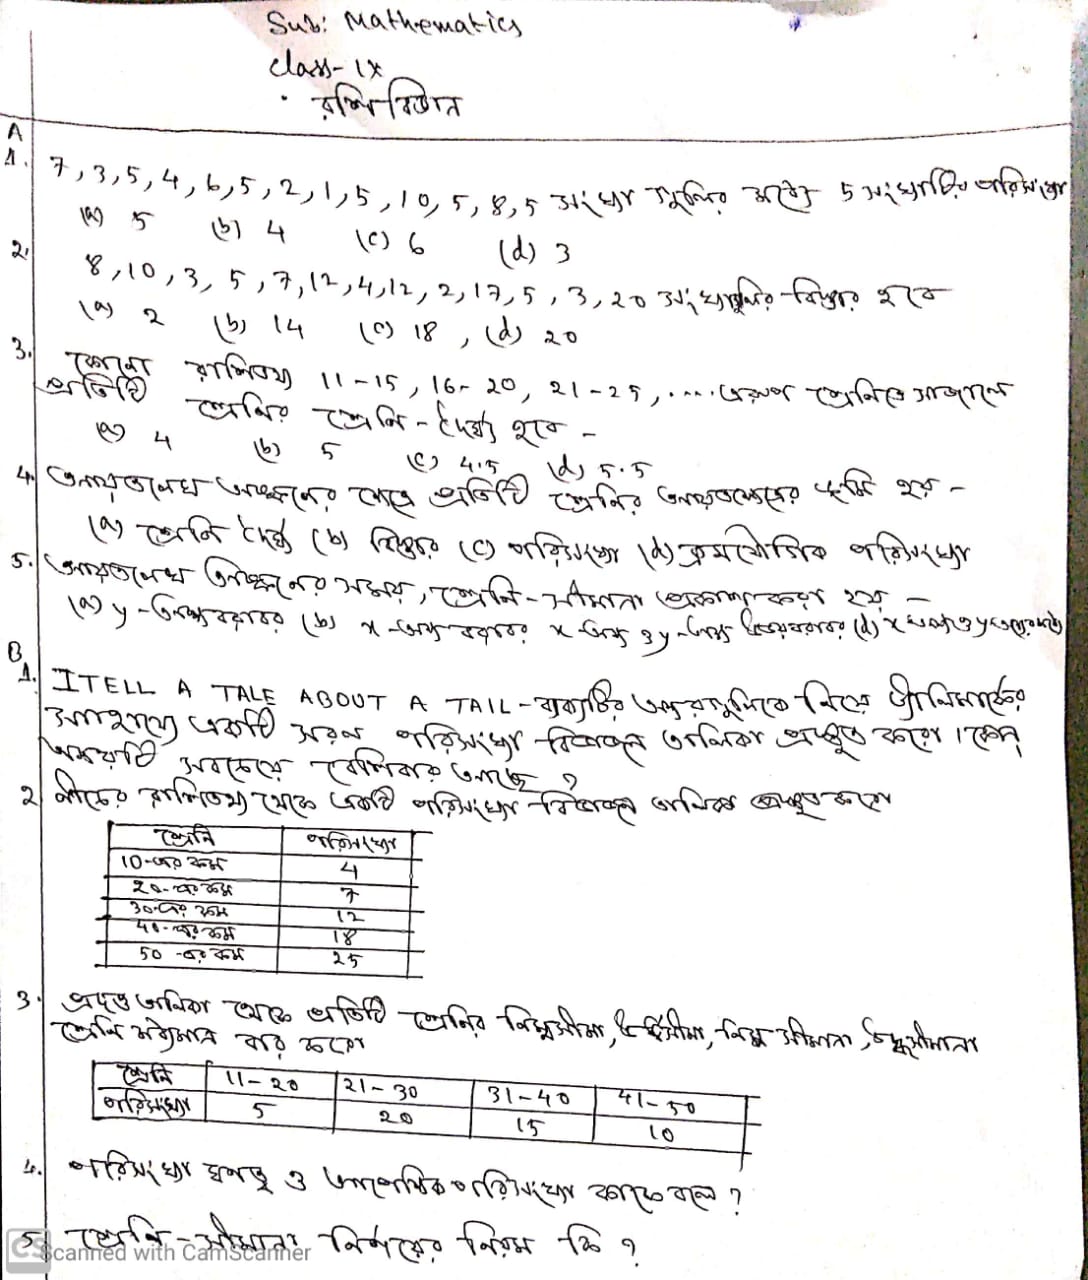 Sub: Mathematics
Class- IX
রাশিবিজ্ঞান
A
1. 7, 3, 5, 4, 6, 5, 2, 1, 5, 10, 5, 8, 5 সংখ্যা গুলির মধ্যে 5 সংখ্যাটির পরিসংখ্যা
(a) 5 (b) 4 (c) 6 (d) 3
2. 8, 10, 3, 5, 7, 12, 4, 12, 2, 17, 5, 3, 20 সংখ্যাগুলির বিস্তার হবে
(a) 2 (b) 14 (c) 18, (d) 20
3. কোনো রাশিতথ্য 11-15, 16-20, 21-25, .... এরূপ শ্রেণিতে সাজালে
প্রতিটি শ্রেণির শ্রেণি-দৈর্ঘ্য হবে -
(a) 4 (b) 5 (c) 4.5 (d) 5.5
4. আয়তলেখ অঙ্কনের ক্ষেত্রে প্রতিটি শ্রেণির আয়তক্ষেত্রের ভূমি হয় -
(a) শ্রেণি দৈর্ঘ্য (b) বিস্তার (c) পরিসংখ্যা (d) ক্রমযৌগিক পরিসংখ্যা
5. আয়তলেখ অঙ্কনের সময়, শ্রেণি-সীমানা প্রকাশ করা হয় -
(a) y-অক্ষ বরাবর (b) x-অক্ষ বরাবর x-অক্ষ ও y-অক্ষ উভয় বরাবর (d) x অক্ষ ও y অক্ষের মধ্যে
B
1. ITELL A TALE ABOUT A TAIL - বাক্যটির অক্ষরগুলিকে নিয়ে ট্যালিমার্কের
সাহায্যে একটি সরল পরিসংখ্যা বিভাজন তালিকা প্রস্তুত করো। কোন্
অক্ষরটি সবচেয়ে বেশিবার আছে ?
2 নীচের রাশিতথ্য থেকে একটি পরিসংখ্যা বিভাজন তালিকা প্রস্তুত করো
শ্রেণি পরিসংখ্যা
10-এর কম 4
20-এর কম 7
30-এর কম 12
40-এর কম 18
50-এর কম 25
3. প্রদত্ত তালিকা থেকে প্রতিটি শ্রেণির নিম্নসীমা, উর্দ্ধসীমা, নিম্ন সীমানা, উর্দ্ধসীমানা
শ্রেণি মধ্যমান বার করো
শ্রেণি 11-20 21-30 31-40 41-50
পরিসংখ্যা 5 20 15 10
4. পরিসংখ্যা ঘনত্ব ও আপেক্ষিক পরিসংখ্যা কাকে বলে ?
5 শ্রেণি-সীমানা নির্ণয়ের নিয়ম কি ?
CS Scanned with CamScanner